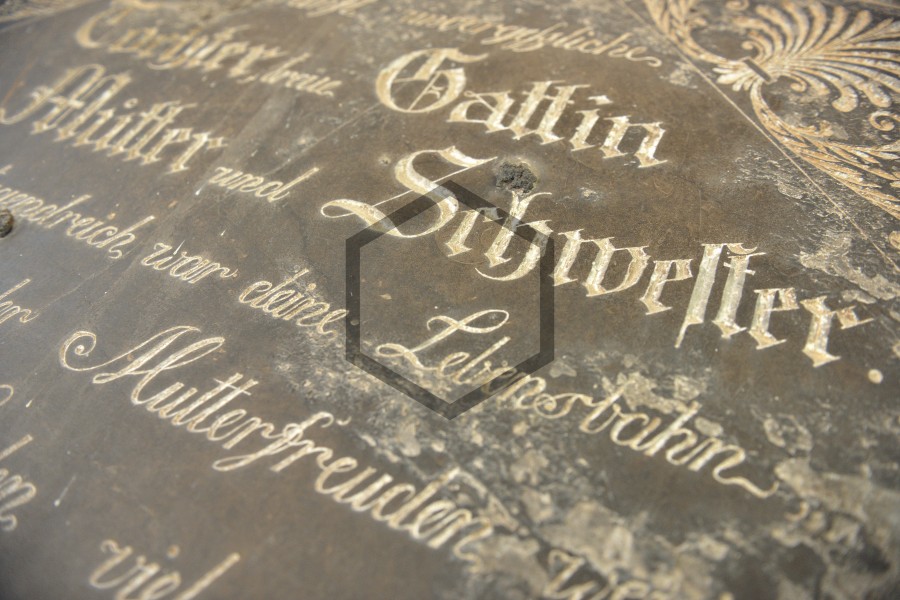 unvergeßliche
Tochter, treue Gattin
Mutter und Schwester.
war deine Lebensbahn
Mutterfreuden
viel